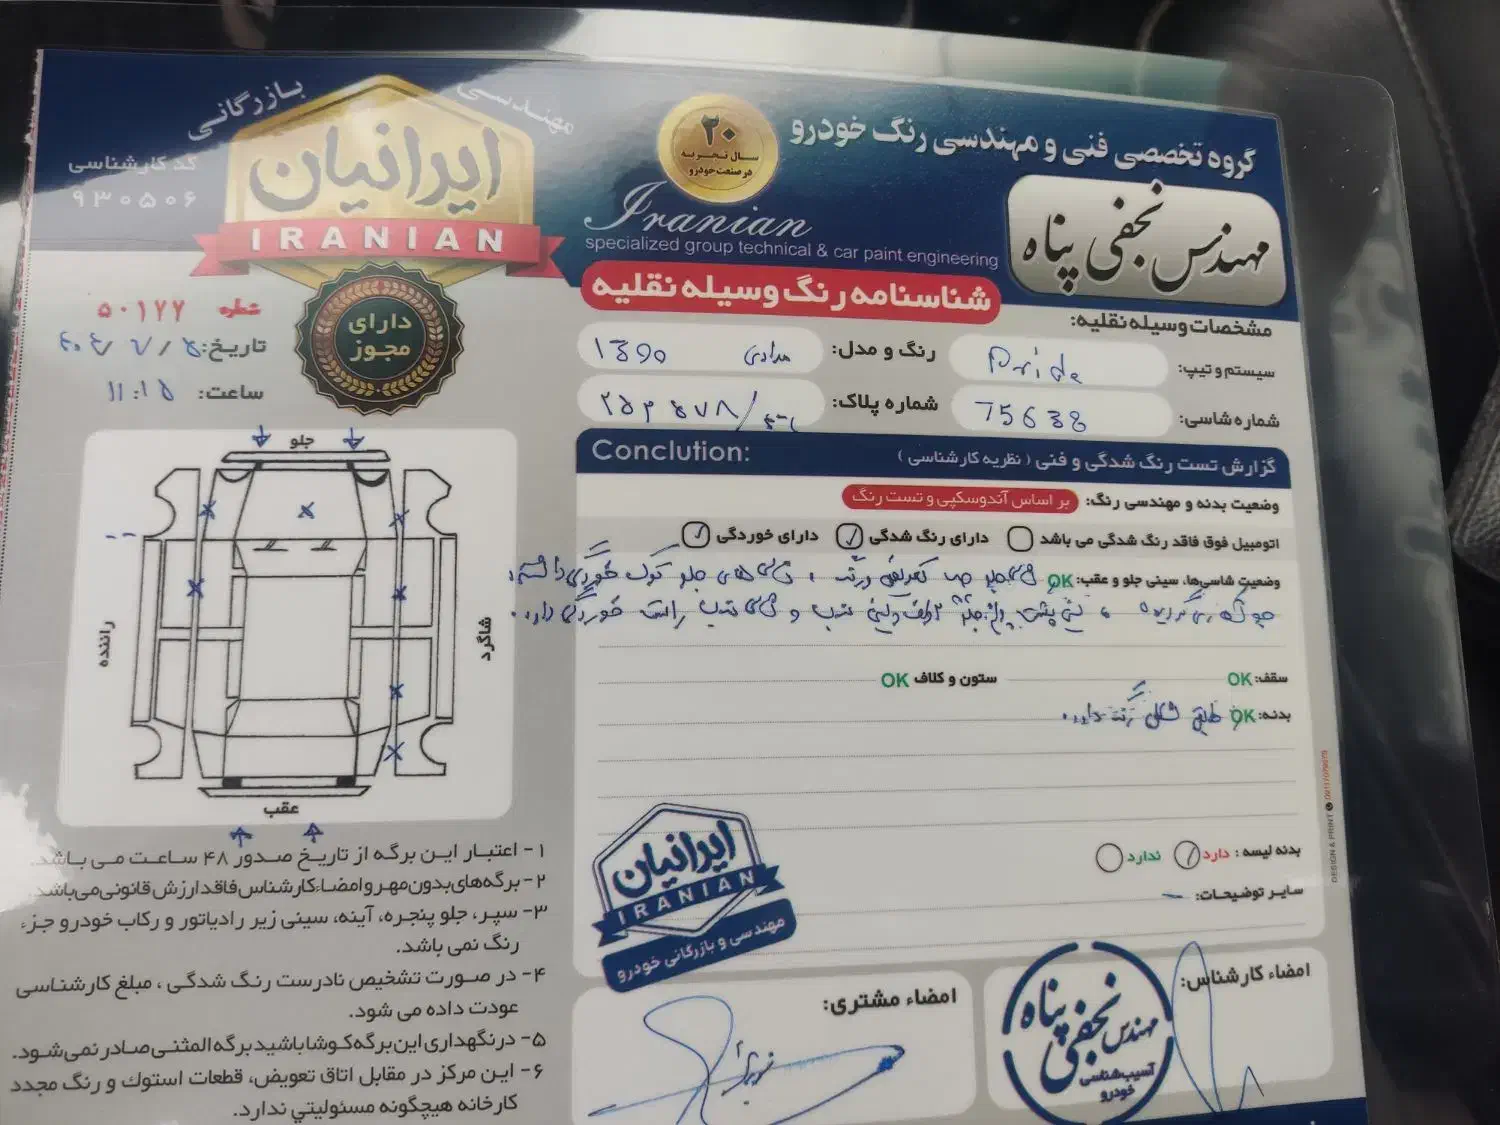 بازرگانی
مهندسی
ایرانیان
IRANIAN
کد کارشناسی
۹۳۰۵۰۶
۲۰
سال تجربه
در صنعت خودرو
گروه تخصصی فنی و مهندسی رنگ خودرو
Iranian
specialized group technical & car paint engineering
مهندس نجفی پناه
شناسنامه رنگ وسیله نقلیه
شماره ۵۰۱۲۲
دارای
مجوز
تاریخ:
ساعت: ۱۱:۱۵
مشخصات وسیله نقلیه:
سیستم و تیپ: Pride
رنگ و مدل: مدادی ۱۳۹۰
شماره شاسی: 75638
شماره پلاک:
Conclution:
گزارش تست رنگ شدگی و فنی ( نظریه کارشناسی )
وضعیت بدنه و مهندسی رنگ: بر اساس آندوسکپی و تست رنگ
اتومبیل فوق فاقد رنگ شدگی می باشد دارای رنگ شدگی دارای خوردگی
وضعیت شاسی‌ها، سینی جلو و عقب: OK
خوردگی دارد.
سقف: OK ستون و کلاف OK
بدنه: OK طبق شکل رنگ دارد.
بدنه لیسه: دارد ندارد
سایر توضیحات: -
جلو
راننده
شاگرد
عقب
۱- اعتبار این برگه از تاریخ صدور ۴۸ ساعت می باشد.
۲- برگه‌های بدون مهر و امضاء کارشناس فاقد ارزش قانونی می‌باشد.
۳- سپر، جلو پنجره، آینه، سینی زیر رادیاتور و رکاب خودرو جزء
رنگ نمی باشد.
۴- در صورت تشخیص نادرست رنگ شدگی، مبلغ کارشناسی
عودت داده می شود.
۵- در نگهداری این برگه کوشا باشید برگه المثنی صادر نمی‌شود.
۶- این مرکز در مقابل اتاق تعویض، قطعات استوک و رنگ مجدد
کارخانه هیچگونه مسئولیتی ندارد.
ایرانیان
IRANIAN
مهندسی و بازرگانی خودرو
امضاء مشتری:
امضاء کارشناس:
مهندس نجفی پناه
آسیب‌شناسی
خودرو
DESIGN & PRINT